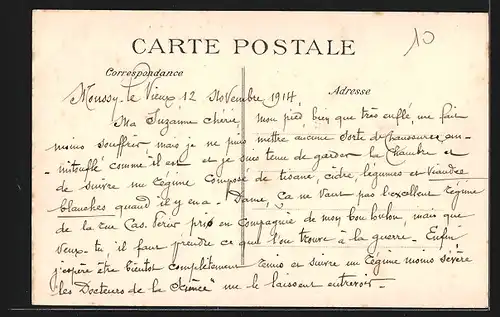 10
CARTE POSTALE
Correspondance
Adresse
Moussy-le Vieux 12 Novembre 1914
Ma Suzanne chérie, mon pied bien que très enflé, me fait
moins souffrir mais je ne puis mettre aucune sorte de chaussures em-
-mitouflé comme il est et je suis tenu de garder la chambre et
de suivre un régime composé de tisane, cidre, légumes et viandes
blanches quand il y en a - Dame, ça ne vaut pas l'excellent régime
de la rue Cas. Périer pris en compagnie de mon bon loulou, mais que
veux-tu, il faut prendre ce que l'on trouve à la guerre - Enfin
j'espère être bientôt complètement remis et suivre un régime moins sévère
"les Docteurs de la Science" me le laissent entrevoir -